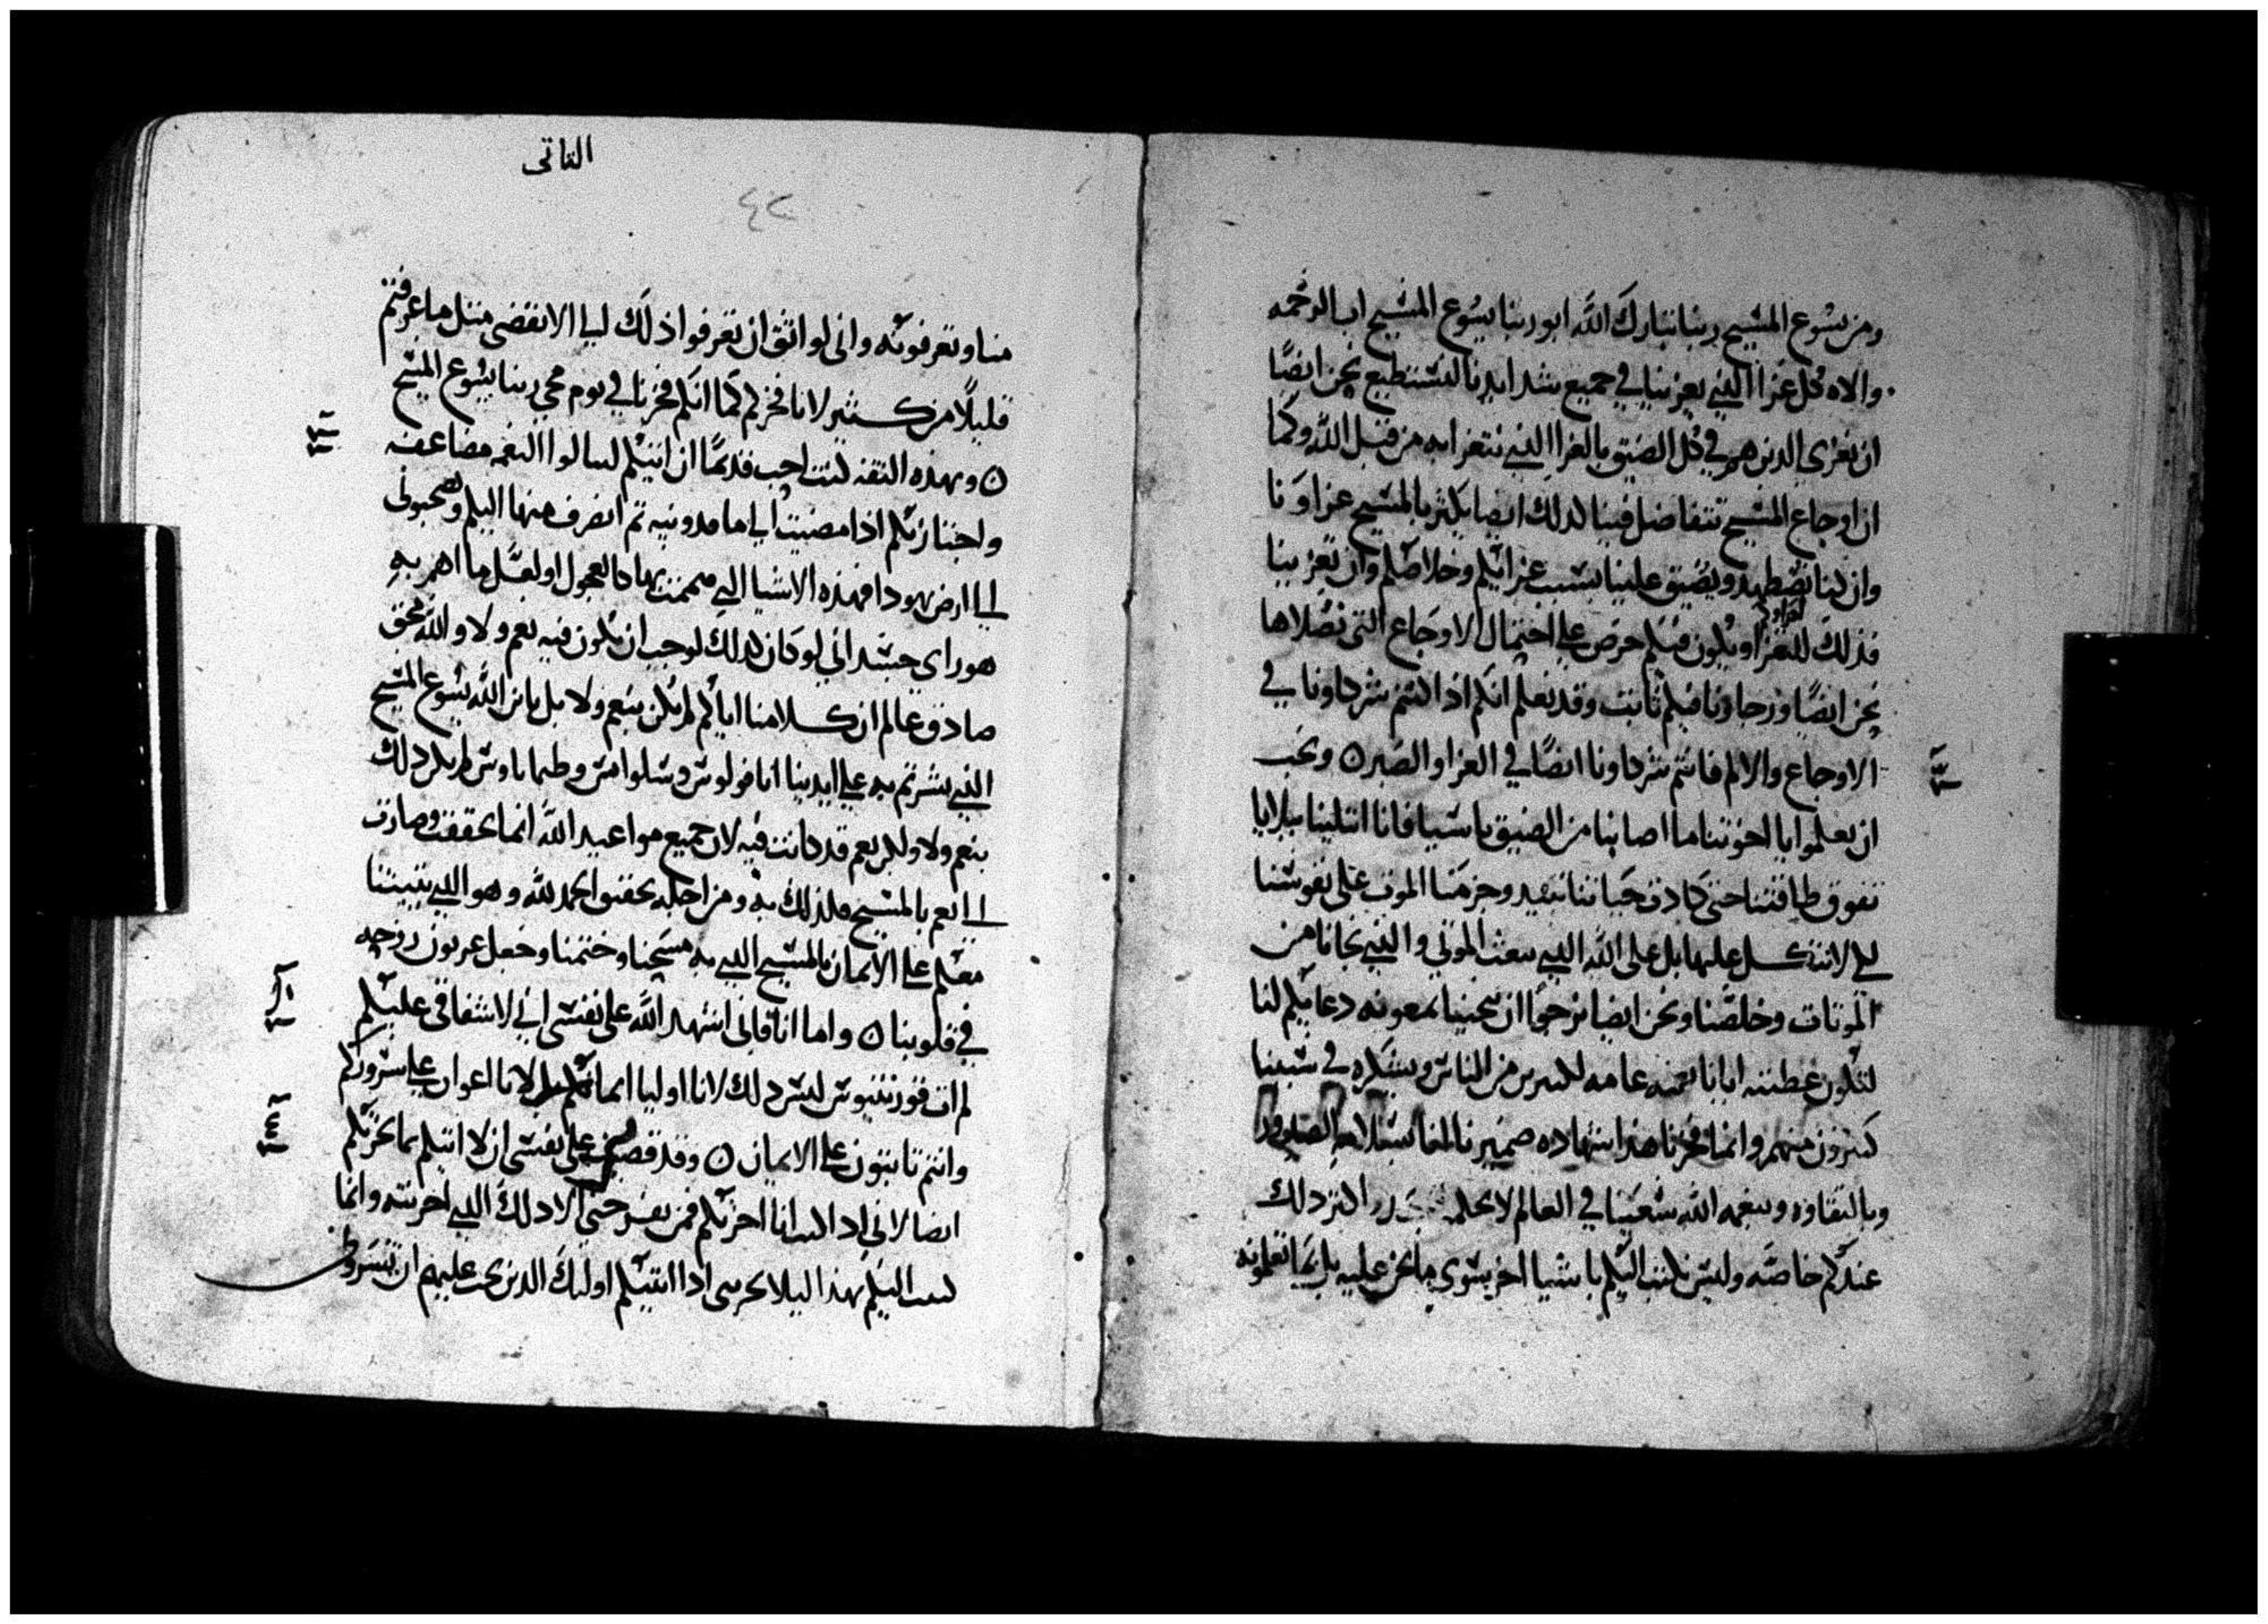 ومن يسوع المسيح ربنا تبارك الله ابو ربنا يسوع المسيح اب الرحمه
والاه كل عزا الذي يعزينا في جميع شدايدنا لنستطيع نحن ايضًا
ان نعزي الذين هم في كل الضيق بالعزا الذي نتعزا به من قبل الله وكما
ان اوجاع المسيح تتفاضل فينا كذلك ايضا يكثر بالمسيح عزاونا
وان كنا نضطهد ويضيق علينا بسبب عزايكم وخلاصكم وان تعزينا
فذلك للتعزا ويكون فيكم حرص على احتمال الاوجاع التي نصلاها
نحن ايضًا ورجاونا فيكم ثابت وقد نعلم انكم اذا كنتم شركاونا في
الاوجاع والالم فانتم شركاونا ايضًا في العزا والصبر ۝ ونحب
ان تعلموا يا اخوتنا ما اصابنا من الضيق باسيا فانا ابتلينا ببلايا
تفوق طاقتنا حتى كادت حياتنا تبيد وجزمنا الموت على نفوسنا
لي لا نتكل عليها بل على الله الذي يبعث الموتي والذي نجانا من
الموتات وخلصنا ونحن ايضا نرجوا ان ينجينا بمعونه دعايكم لنا
لتكون عطيته ايانا نعمه عامه لكثيرين من الناس ويشكره في سببنا
كثيرون منهم وانما فخرنا هذا شهاده ضميرنا
وبالنقاوه وبنعمه الله سعينا في العالم لا بحكمه اكثر ذلك
عندكم خاصه وليس نكتب اليكم باشيا اخر سوى ما نحن عليه بل بما تعلمونه
الثاني
٤٢
منا وتعرفونه واني لواثق ان تعرفوا ذلك الى الانقضى مثل ما عرفتم
قليلًا من كثير لانا فخركم كما انكم فخرنا في يوم مجي ربنا يسوع المسيح
۝ وبهذه الثقه كنت احب قديمًا ان اتيكم لتنالوا النعمه مضاعفه
واجتاز بكم اذا مضيت الى ماقدونيه ثم انصرف منها اليكم وتصحبوني
الى ارض يهودا فهذه الاشيا التي هممت بها كالعجول او لعل ما اهم به
هو راي جسداني لو كان كذلك لوجب ان يكون فيه نعم ولا والله محق
صادق عالم ان كلامنا اياكم لم يكن بنعم ولا بل بابن الله يسوع المسيح
الذي بشرتم به على ايدينا انا فولوس وسلوانس وطيماتاوس لم يكن ذلك
بنعم ولا ولكن نعم قد كانت فيه لان جميع مواعيد الله انما تحققت وصارت
الى نعم بالمسيح فلذلك به ومن اجله نحقق الحمد لله وهو الذي يثبتنا
معكم على الايمان بالمسيح الذي به مسحنا وختمنا وجعل عربون روحه
في قلوبنا ۝ واما انا فاني اشهد الله على نفسي اني لاشفاقي عليكم
لم ات قورنثيوس ليس ذلك لانا اوليا ايمانكم بل لانا اعوان على سروركم
وانتم ثابتون على الايمان ۝ وقد قضيت على نفسي ان لا اتيكم بما يحزنكم
ايضا لاني اذا كنت انا احزنكم فمن يفرحني الا ذلك الذي احزنته وانما
كتبت اليكم بهذا ليلا يحزنني اذا اتيتكم اوليك الذين يجب عليهم ان يسروني